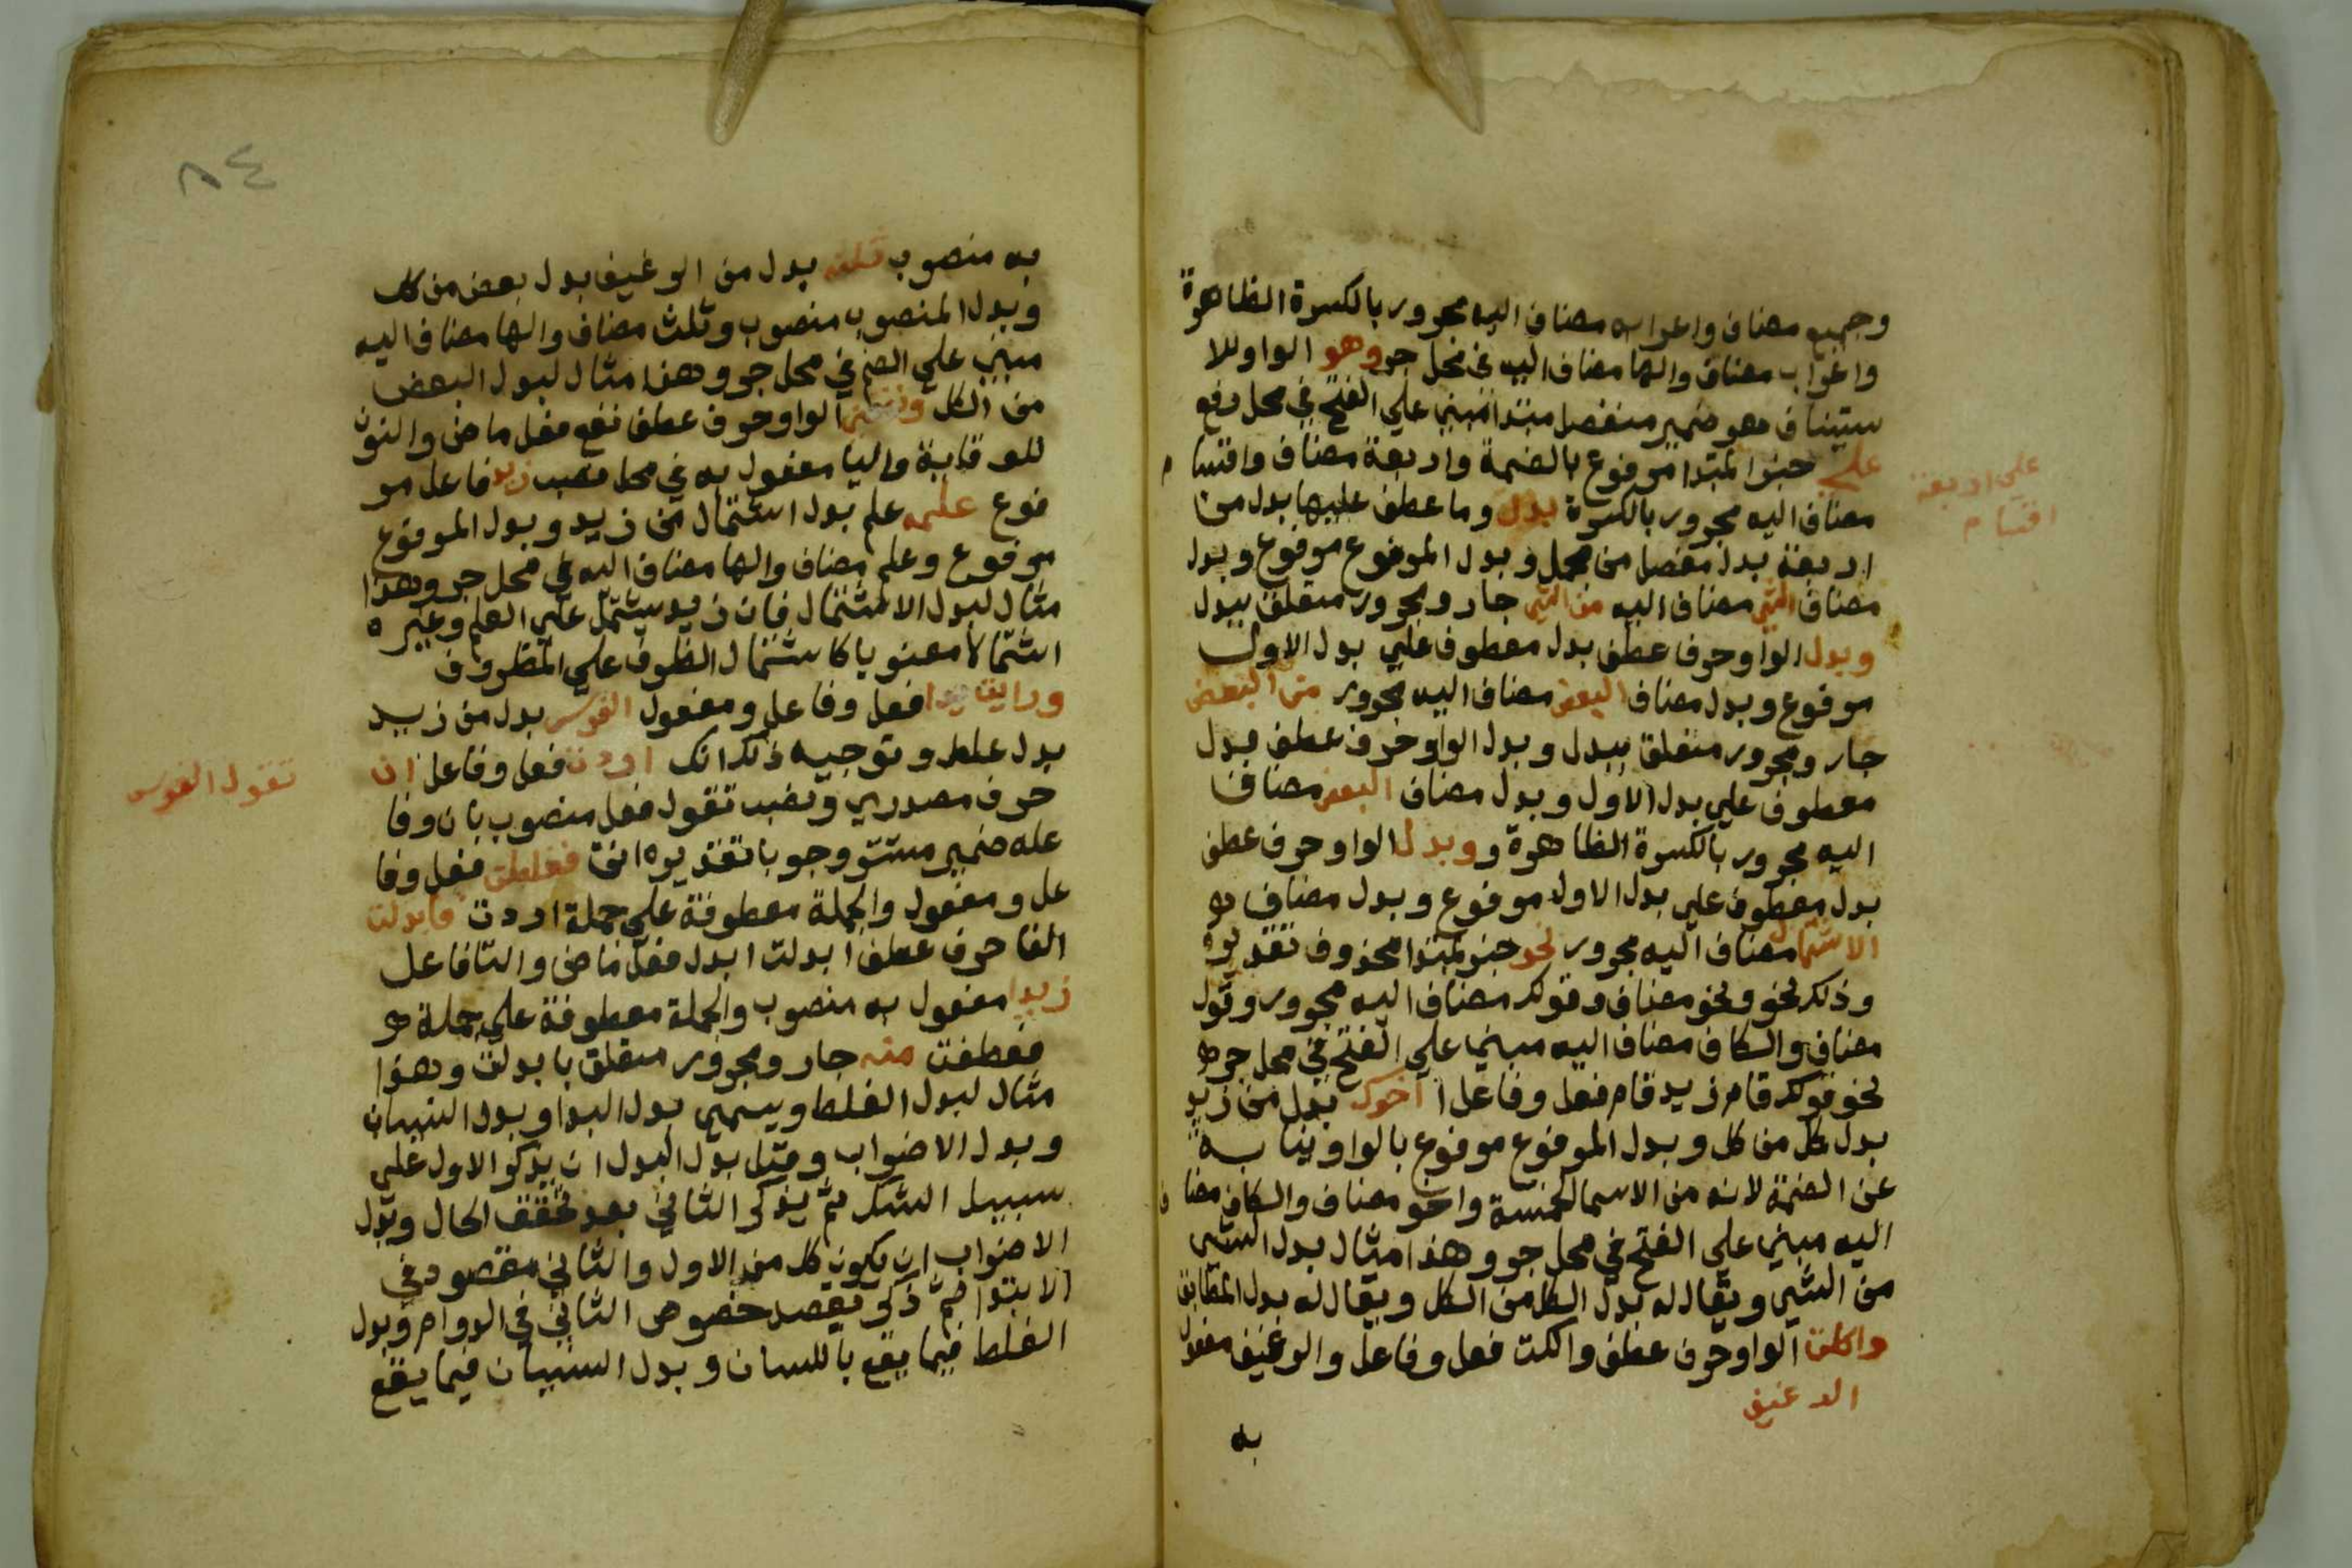 وجميع مضاف واعرابه مضاف اليه مجرور بالكسرة الظاهرة
واعراب مضاف والها مضاف اليه في محل جر وهو الواو للا
ستيناف هو ضمير منفصل مبتدا مبني علي الفتح في محل رفع
علي خبر المبتدا مرفوع بالضمة واربعة مضاف واقسا م
علي اربعة
اقسام
مضاف اليه مجرور بالكسرة بدل وما عطف عليها بدل من
اربعة بدل مفصل من مجمل وبدل المرفوع مرفوع وبدل
مضاف الشي مضاف اليه من الشي جار ومجرور متعلق ببدل
وبدل الواو حرف عطف بدل معطوف علي بدل الاول
مرفوع وبدل مضاف البعض مضاف اليه مجرور من البعض
جار ومجرور متعلق ببدل وبدل الواو حرف عطف بدل
معطوف علي بدل الاول وبدل مضاف البعض مضاف
اليه مجرور بالكسرة الظاهرة و وبدل الواو حرف عطف
بدل معطوف علي بدل الاول مرفوع وبدل مضاف
الاشتمال مضاف اليه مجرور نحو خبر لمبتدا محذوف تقديره
وذلك نحو ونحو مضاف وقولك مضاف اليه مجرور وقول
مضاف والكاف مضاف اليه مبني علي الفتح في محل جر
نحو قولك قام زيد قام فعل وفاعل اخوك بدل من زيد
بدل كل من كل وبدل المرفوع مرفوع بالواو نيابة
عن الضمة لانه من الاسما الخمسة واخو مضاف والكاف مضا ف
اليه مبني علي الفتح في محل جر وهذا مثال بدل الشي
من الشي ويقال له بدل الكل من الكل ويقال له بدل المطابق
واكلت الواو حرف عطف واكلت فعل وفاعل والرغيف مفعول
الرغيف
به
٨٤
به منصوب ثلثه بدل من الرغيف بدل بعض من كل
وبدل المنصوب منصوب وثلث مضاف والها مضاف اليه
مبني علي الضم في محل جر وهذا مثال لبدل البعض
من الكل ونفعني الواو حرف عطف نفع فعل ماض والنون
للوقاية واليا مفعول به في محل نصب زيد فاعل مر
فوع علمه علم بدل اشتمال من زيد وبدل المرفوع
مرفوع وعلم مضاف والها مضاف اليه في محل جر وهذا
مثال لبدل الاشتمال فان زيد يشتمل علي العلم وغيره
اشتمالا معنويا كاشتمال الظرف علي المظروف
ورايت زيدا فعل وفاعل ومفعول الفرس بدل من زيد
بدل غلط وتوجيه ذلك انك اردت فعل وفاعل ان
تقول الفرس
حرف مصدري ونصب تقول فعل منصوب بان وفا
عله ضمير مستتر وجوبا تقديره انت فغلطت فعل وفا
عل ومفعول والجملة معطوفة علي جملة اردت فابدلت
الفا حرف عطف ابدلت ابدل فعل ماض والتا فاعل
زيدا مفعول به منصوب والجملة معطوفة علي جملة
فغلطت منه جار ومجرور متعلق بابدلت وهذا
مثال لبدل الغلط ويسمي بدل البدا وبدل النسيان
وبدل الاضراب وقيل بدل البدل ان يذكر الاول علي
سبيل الشك ثم يذكر الثاني بعد تحقق الحال وبدل
الاضراب ان يكون كل من الاول والثاني مقصود في
الابتدا ثم ذكر يقصد خصوص الثاني في الدوام وبدل
الغلط فيما يقع باللسان وبدل النسيان فيما يقع